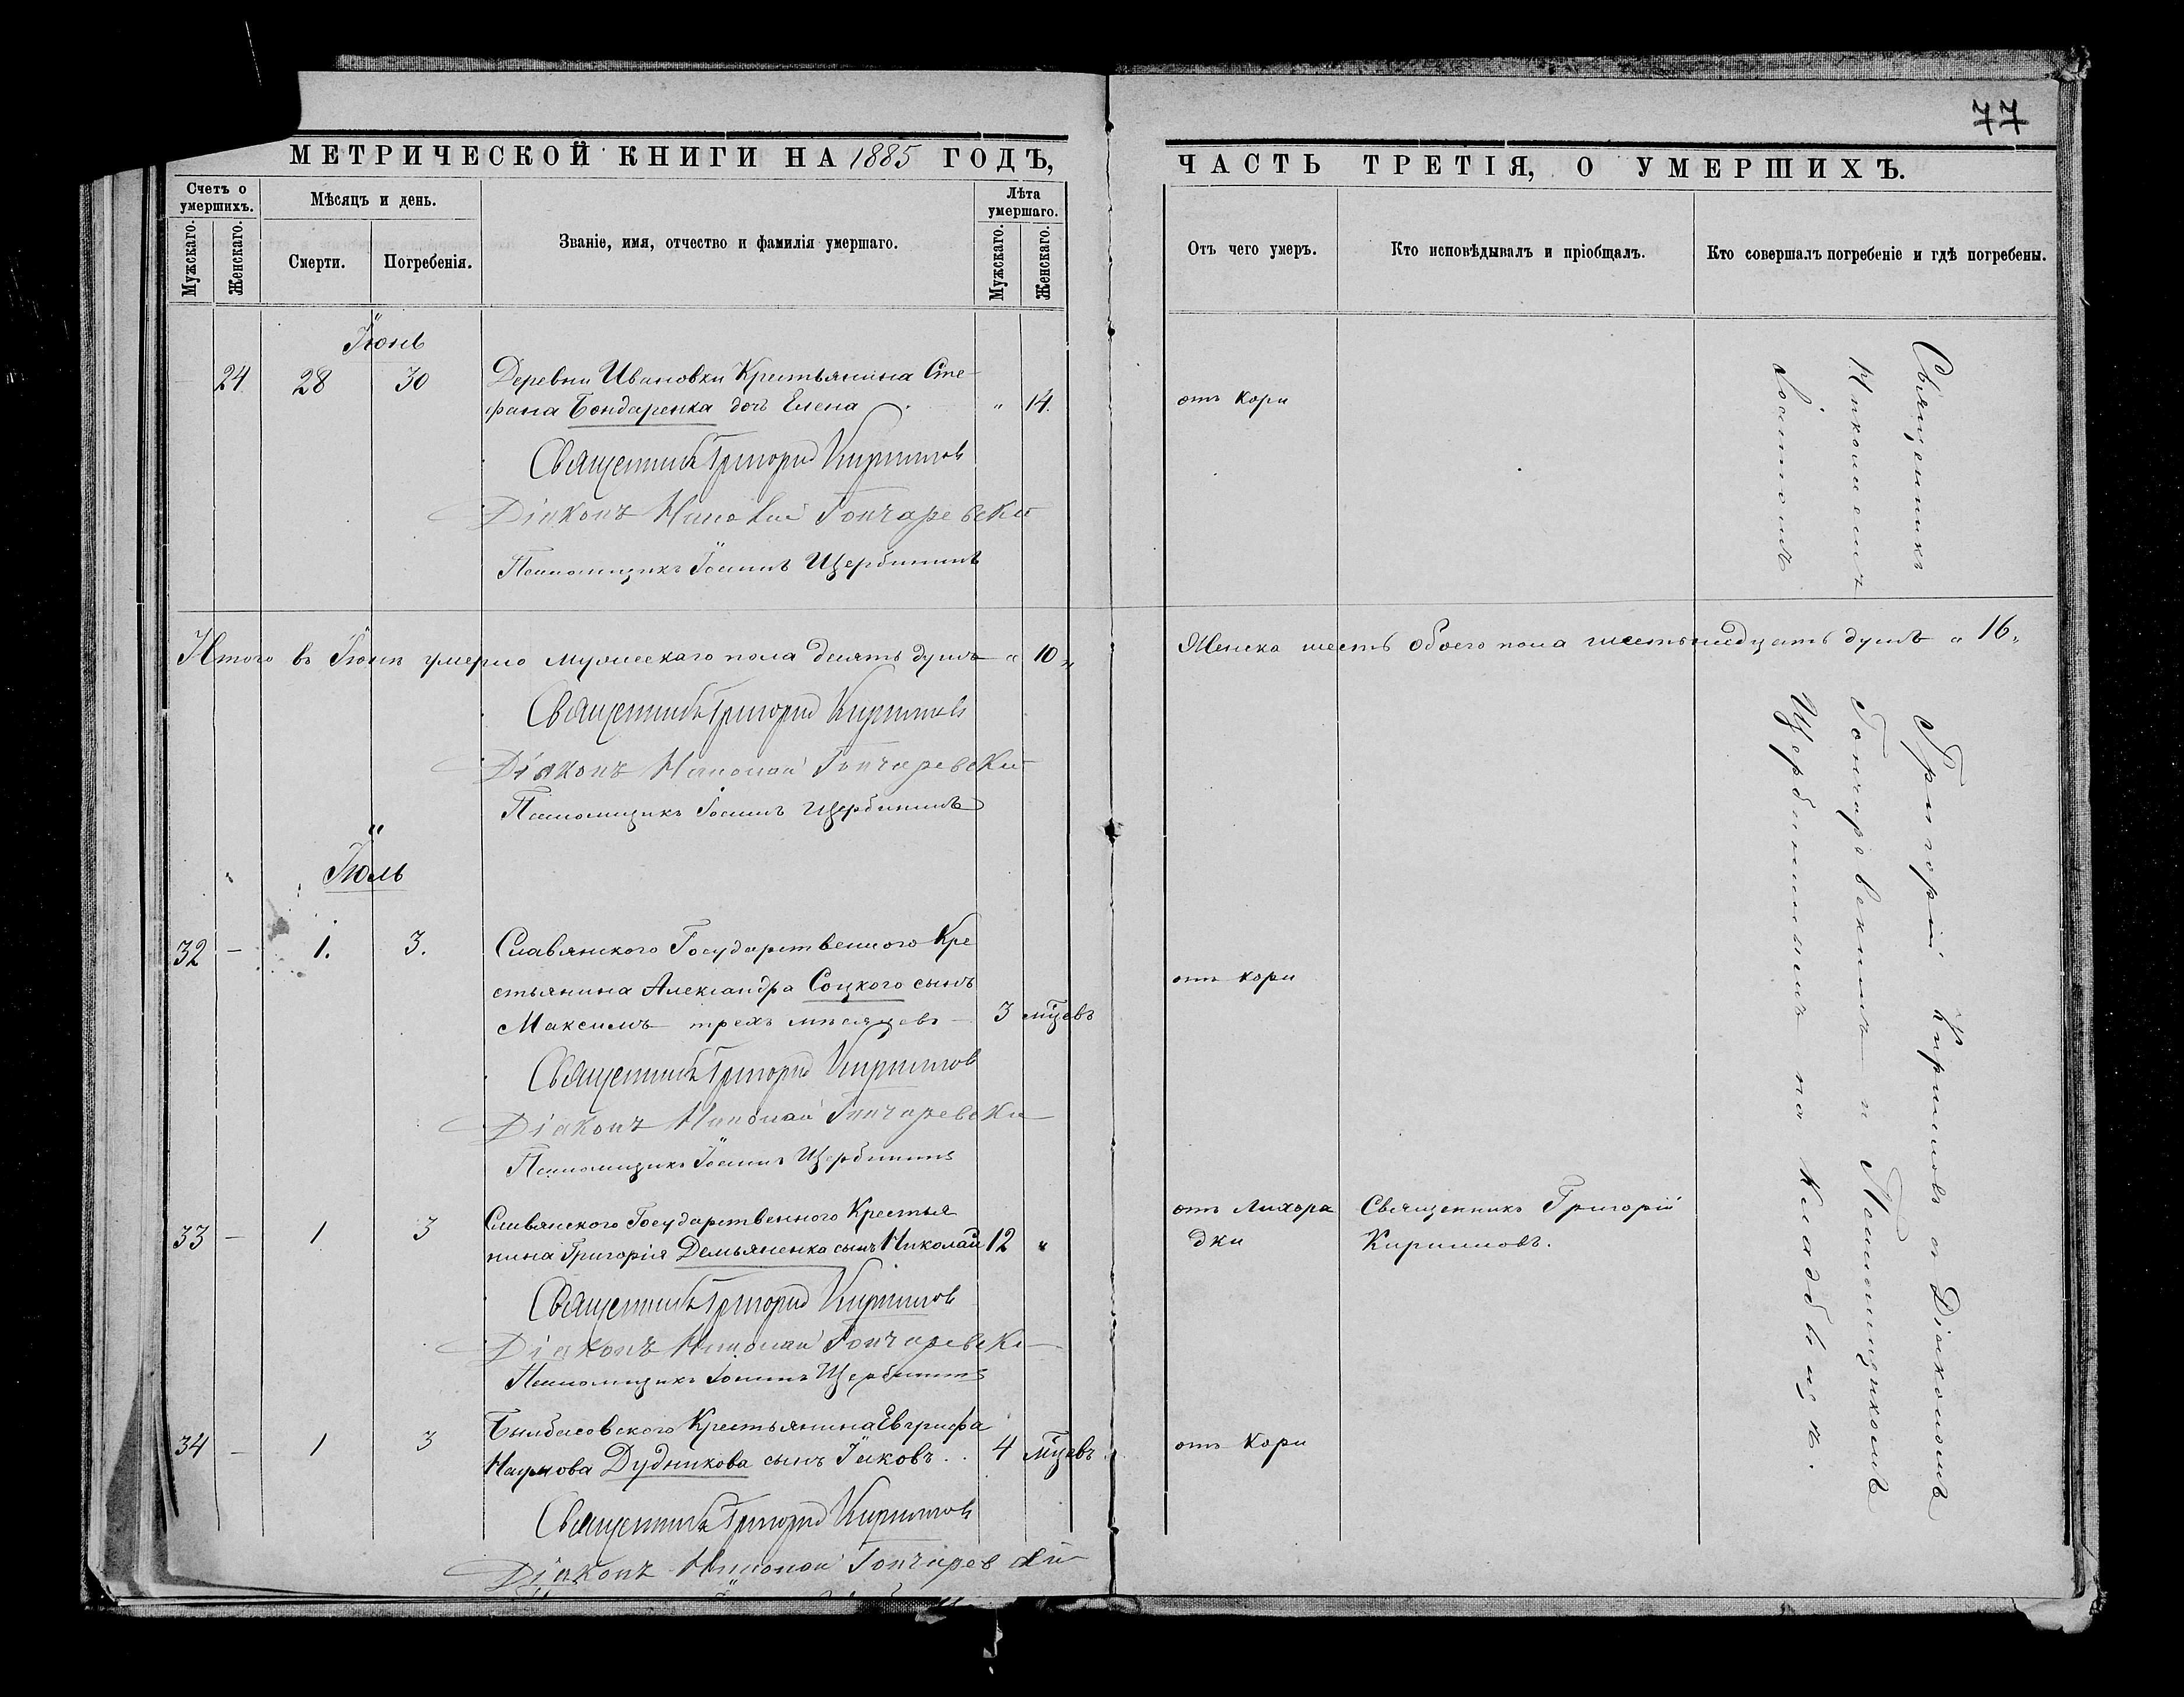 77
МЕТРИЧЕСКОЙ КНИГИ НА 1885 ГОДЪ,
ЧАСТЬ ТРЕТІЯ, О УМЕРШИХЪ.
Счетъ о умершихъ.
Мѣсяцъ и день.
Званіе, имя, отчество и фамилія умершаго.
Лѣта умершаго.
Мужскаго.
Женскаго.
Смерти.
Погребенія.
Мужскаго.
Женскаго.
Отъ чего умеръ.
Кто исповѣдывалъ и пріобщалъ.
Кто совершалъ погребеніе и гдѣ погребены.
Іюнь
24 28 30 Деревни Ивановки Крестьянина Сте-
фана Бондаренка дочь Елена „ 14. отъ кори
Священникъ Григорій Кириловъ
Діаконъ Николай Гончаревскій
Псаломщикъ Іоаннъ Щербининъ
Итого въ Іюнѣ умерло мужескаго пола десять душъ „ 10 „
Женска шесть обоего пола шестьнадцать душъ „ 16 „
Священникъ Григорій Кириловъ
Діаконъ Николай Гончаревскій
Псаломщикъ Іоаннъ Щербининъ
Іюль
32 — 1. 3. Славянского Государственного Кре
стьянина Александра Соцкого сынъ отъ кори
Максимъ трехъ мѣсяцевъ — 3 мцевъ
Священникъ Григорій Кириловъ
Діаконъ Николай Гончаревскій
Псаломщикъ Іоаннъ Щербининъ
33 — 1 3 Славянского Государственного Крестья
нина Григорія Демьяненка сынъ Николай 12 „
отъ Лихора
дки
Священникъ Григорій
Кириловъ.
Священникъ Григорій Кириловъ
Діаконъ Николай Гончаревскій
Псаломщикъ Іоаннъ Щербининъ
34 — 1 3 Былбасовского Крестьянина Евграфа
Наумова Дудникова сынъ Іаковъ. . 4 мцевъ отъ Кори
Священникъ Григорій Кириловъ
Діаконъ Николай Гончаревскій
Священникъ Григорій Кириловъ съ Діакономъ
Николаемъ Гончаревскимъ и Псаломщикомъ
Іоанномъ Щербининымъ на кладбищѣ.